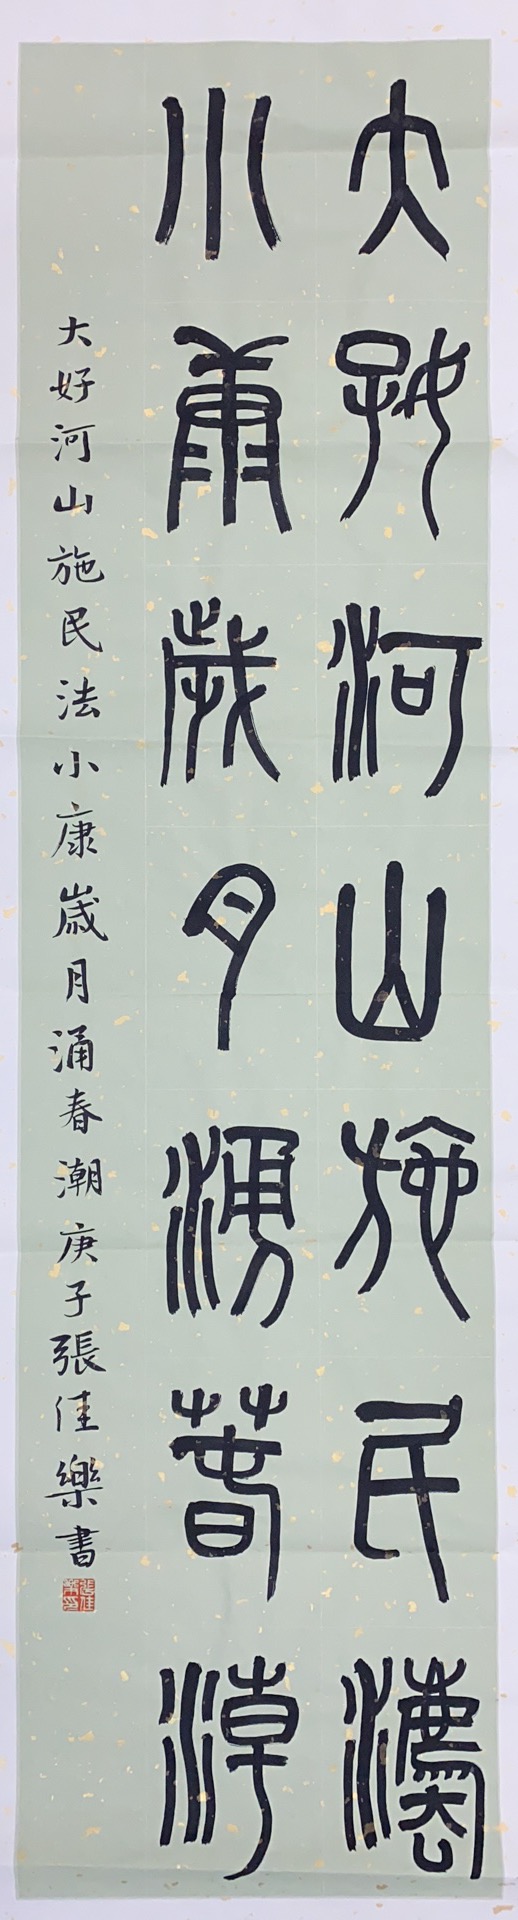 大好河山施民灋
小康歲月涌萅淖
大好河山施民法小康歲月涌春潮庚子張佳樂書
張佳樂印